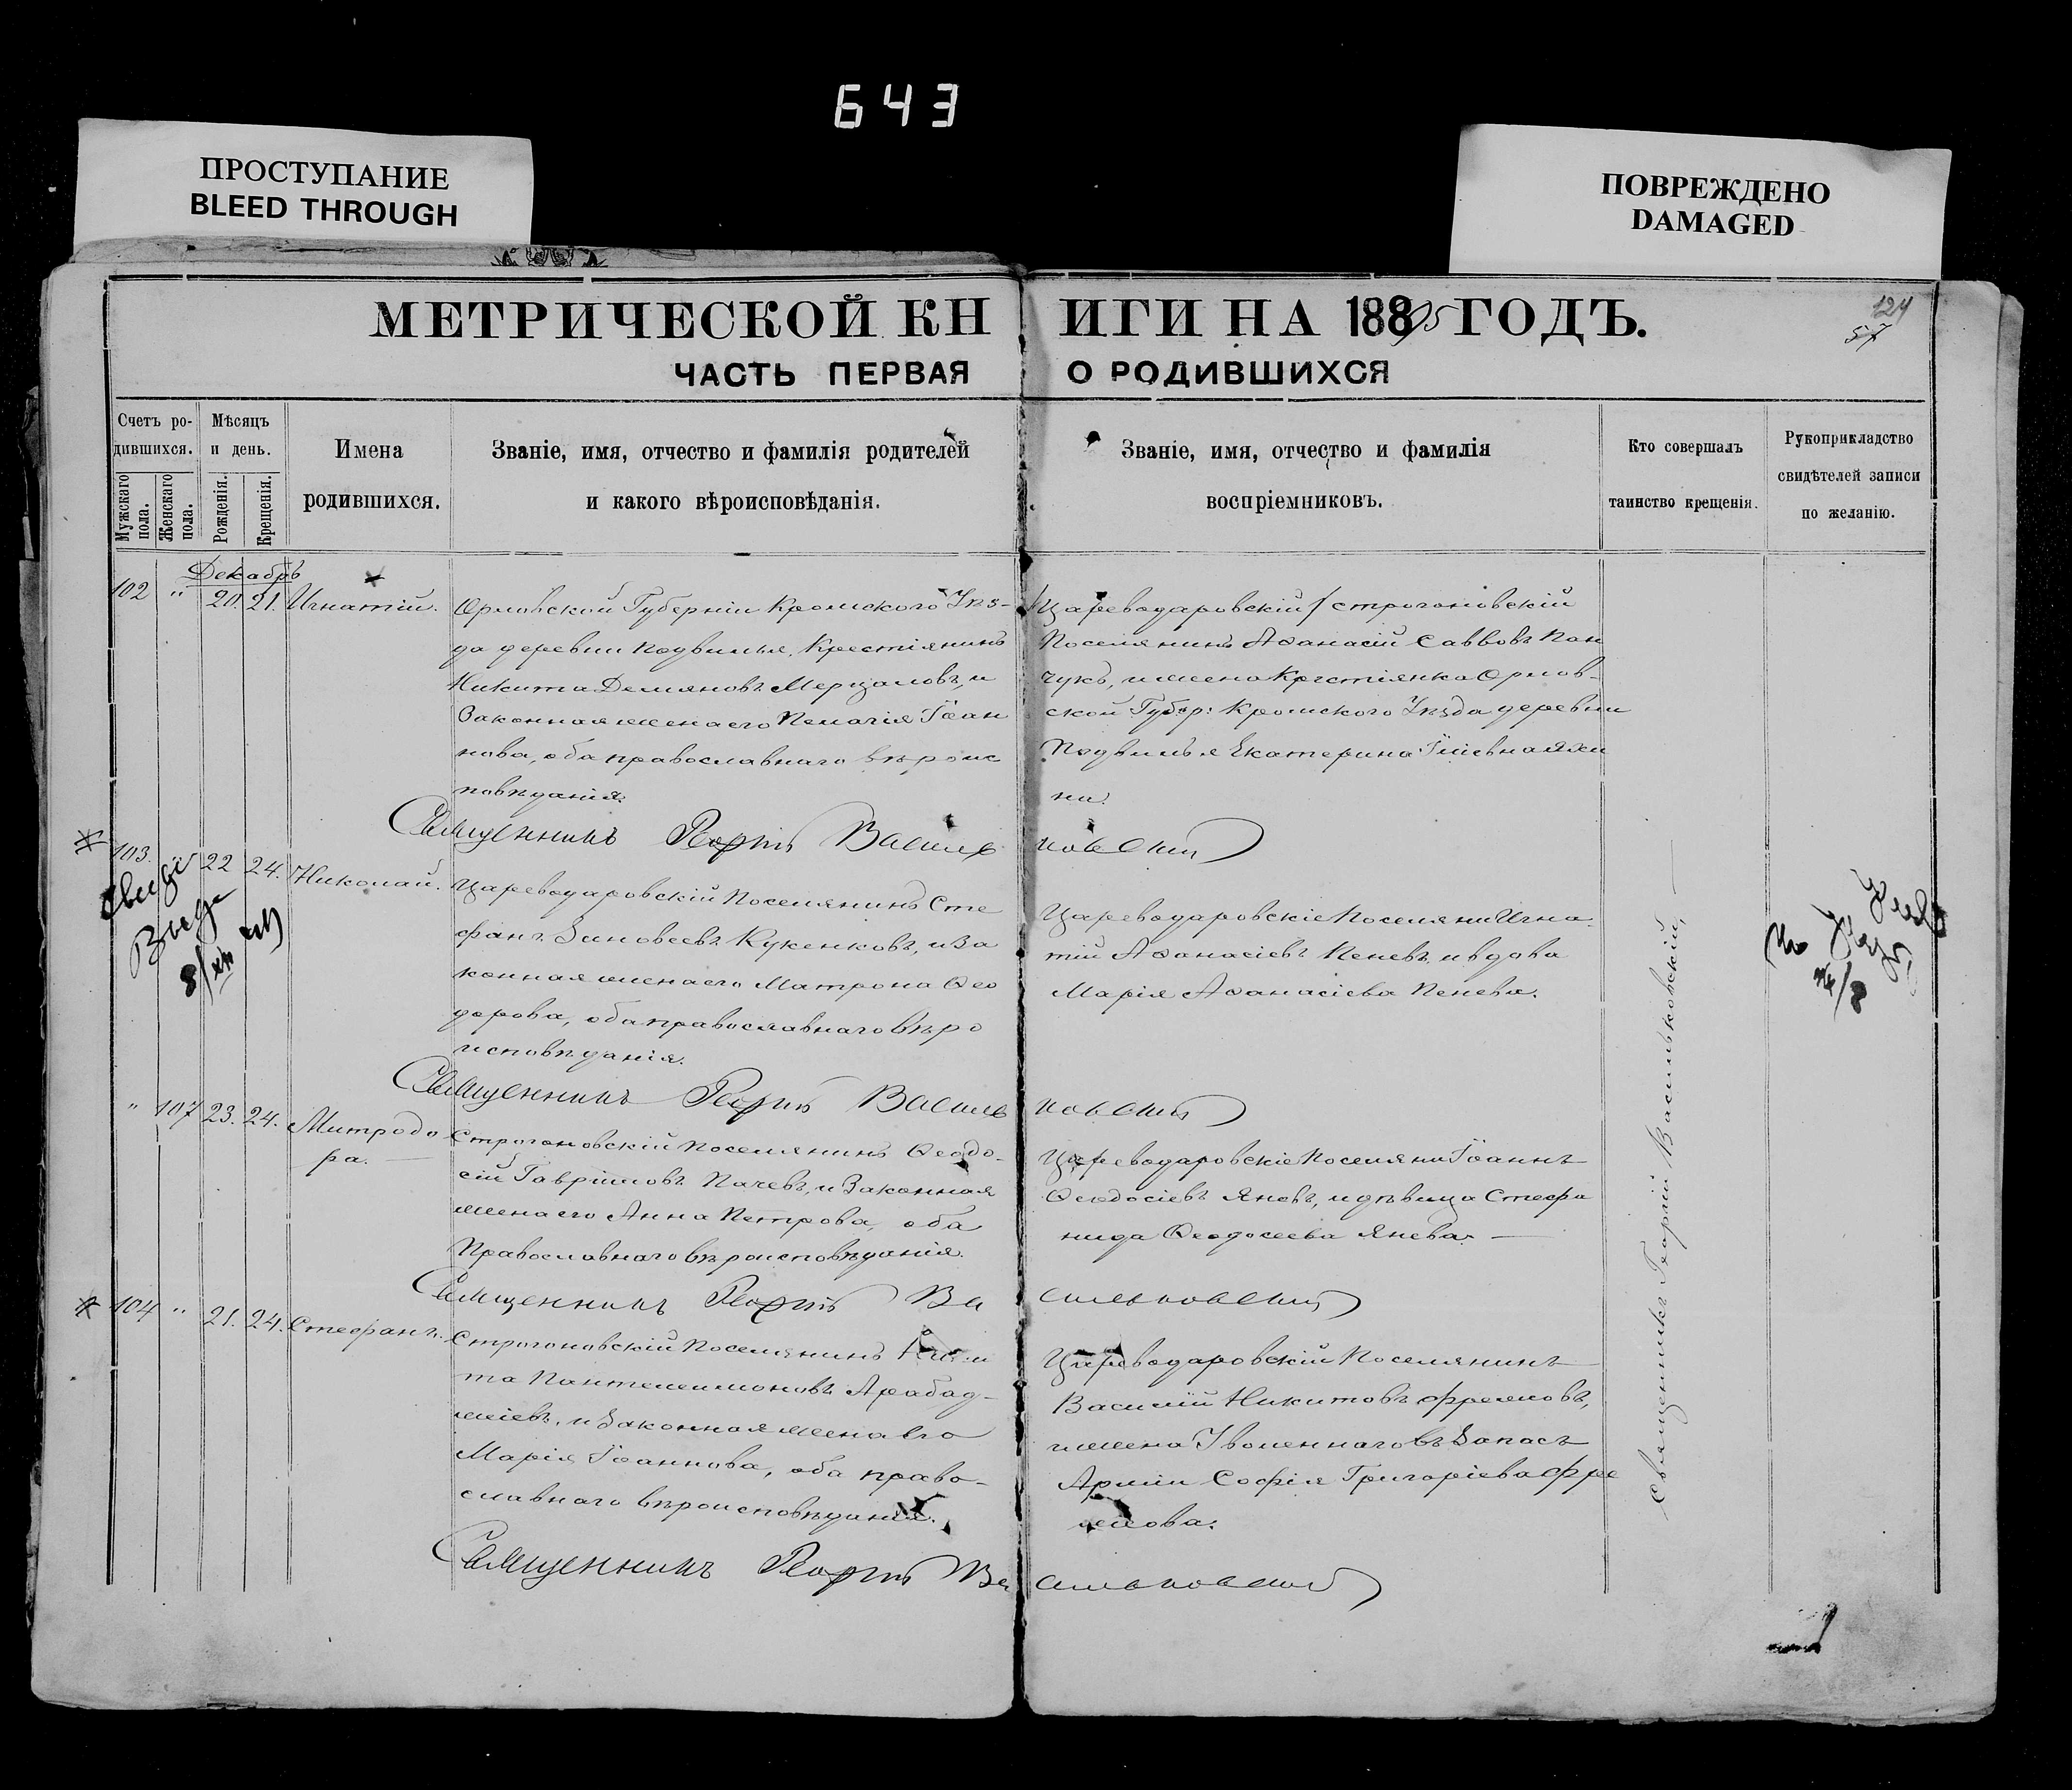 643
ПРОСТУПАНИЕ
BLEED THROUGH
ПОВРЕЖДЕНО
DAMAGED
МЕТРИЧЕСКОЙ КНИГИ НА 1885 ГОДЪ.
124
57
ЧАСТЬ ПЕРВАЯ О РОДИВШИХСЯ
Счетъ ро-
дившихся.
Мужскаго пола.
Женскаго пола.
Мѣсяцъ
и день.
Рожденія.
Крещенія.
Имена
родившихся.
Званіе, имя, отчество и фамилія родителей
и какого вѣроисповѣданія.
Званіе, имя, отчество и фамилія
воспріемниковъ.
Кто совершалъ
таинство крещенія.
Рукоприкладство
свидѣтелей записи
по желанію.
Декабрь
102 " 20. 21. Игнатій.
Орловской Губерніи Кромского Уѣз-
да деревни Подвилья, Крестіянинъ
Никита Демяновъ Мерцаловъ, и
Законная жена его Пелагія Іоан
нова, оба православнаго вѣроис
повѣданія.
Цареводаровскій / строгановскій
Поселянинъ Аѳанасій Саввовъ Пан
чукъ, и жена Крестіянка Орлов-
ской Губер: Кромского Уѣзда деревни
Подвилья Екатерина
на.
Священникъ Георгій Васильковскій
103. 22 24. Николай.
Цареводаровскій Поселянинъ Сте
фанъ Зиновеевъ Кукенковъ, и За
конная жена его Матрона Ѳео
дорова, оба православнаго вѣро
исповѣданія.
Цареводаровскіе Поселяни Игна
тій Аѳанасіевъ Пеневъ, и вдова
Марія Аѳанасіева Пенева.
Священникъ Георгій Васильковскій
" 107 23. 24. Митродо
ра.
Строгановскій Поселянинъ Ѳеодо-
сій Гавріиловъ Пачевъ, и Законная
жена его Анна Петрова, оба
Православнаго вѣроисповѣданія.
Цареводаровскіе Поселяни Іоаннъ
Ѳеодосіевъ Яневъ, и дѣвица Стефа
нида Ѳеодосеева Янева.
Священникъ Георгій Васильковскій
104 " 21. 24. Стефанъ.
Строгановскій Поселянинъ Ники
та Пантелеимоновъ Арабад-
жіевъ, и Законная жена его
Марія Іоаннова, оба право-
славнаго вѣроисповѣданія.
Цареводаровскій Поселянинъ
Василій Никитовъ Фремовъ,
и жена Уволеннаго въ Запасъ
Арміи Софія Григоріева Фре
мова.
Священникъ Георгій Васильковскій
Священникъ Георгій Васильковскій,